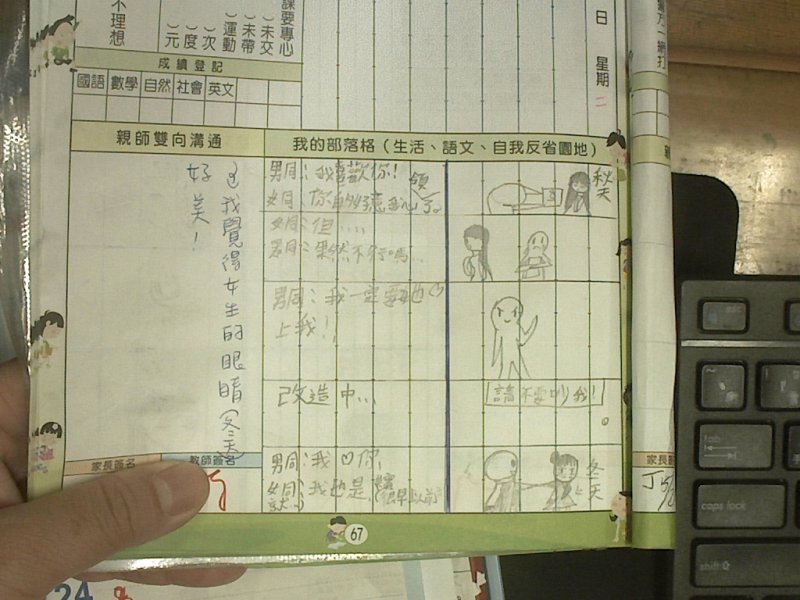 不理想
元
度
次
運動
未帶
未交
課要專心
日 星期 二
成績登記
國語 數學 自然 社會 英文
親師雙向溝通
我的部落格(生活、語文、自我反省園地)
我覺得女生的眼睛
好美!
男同:我喜歡你!
女同:你
領
心了。
女同:但....
男同:果然不行嗎...
男同:我一定要
上我!!
改造中...
男同:我♡你,
女同:我也是,
秋天
請不要吵我!
冬天
家長簽名
教師簽名
67
家長
24
esc
tab
caps lock
shift